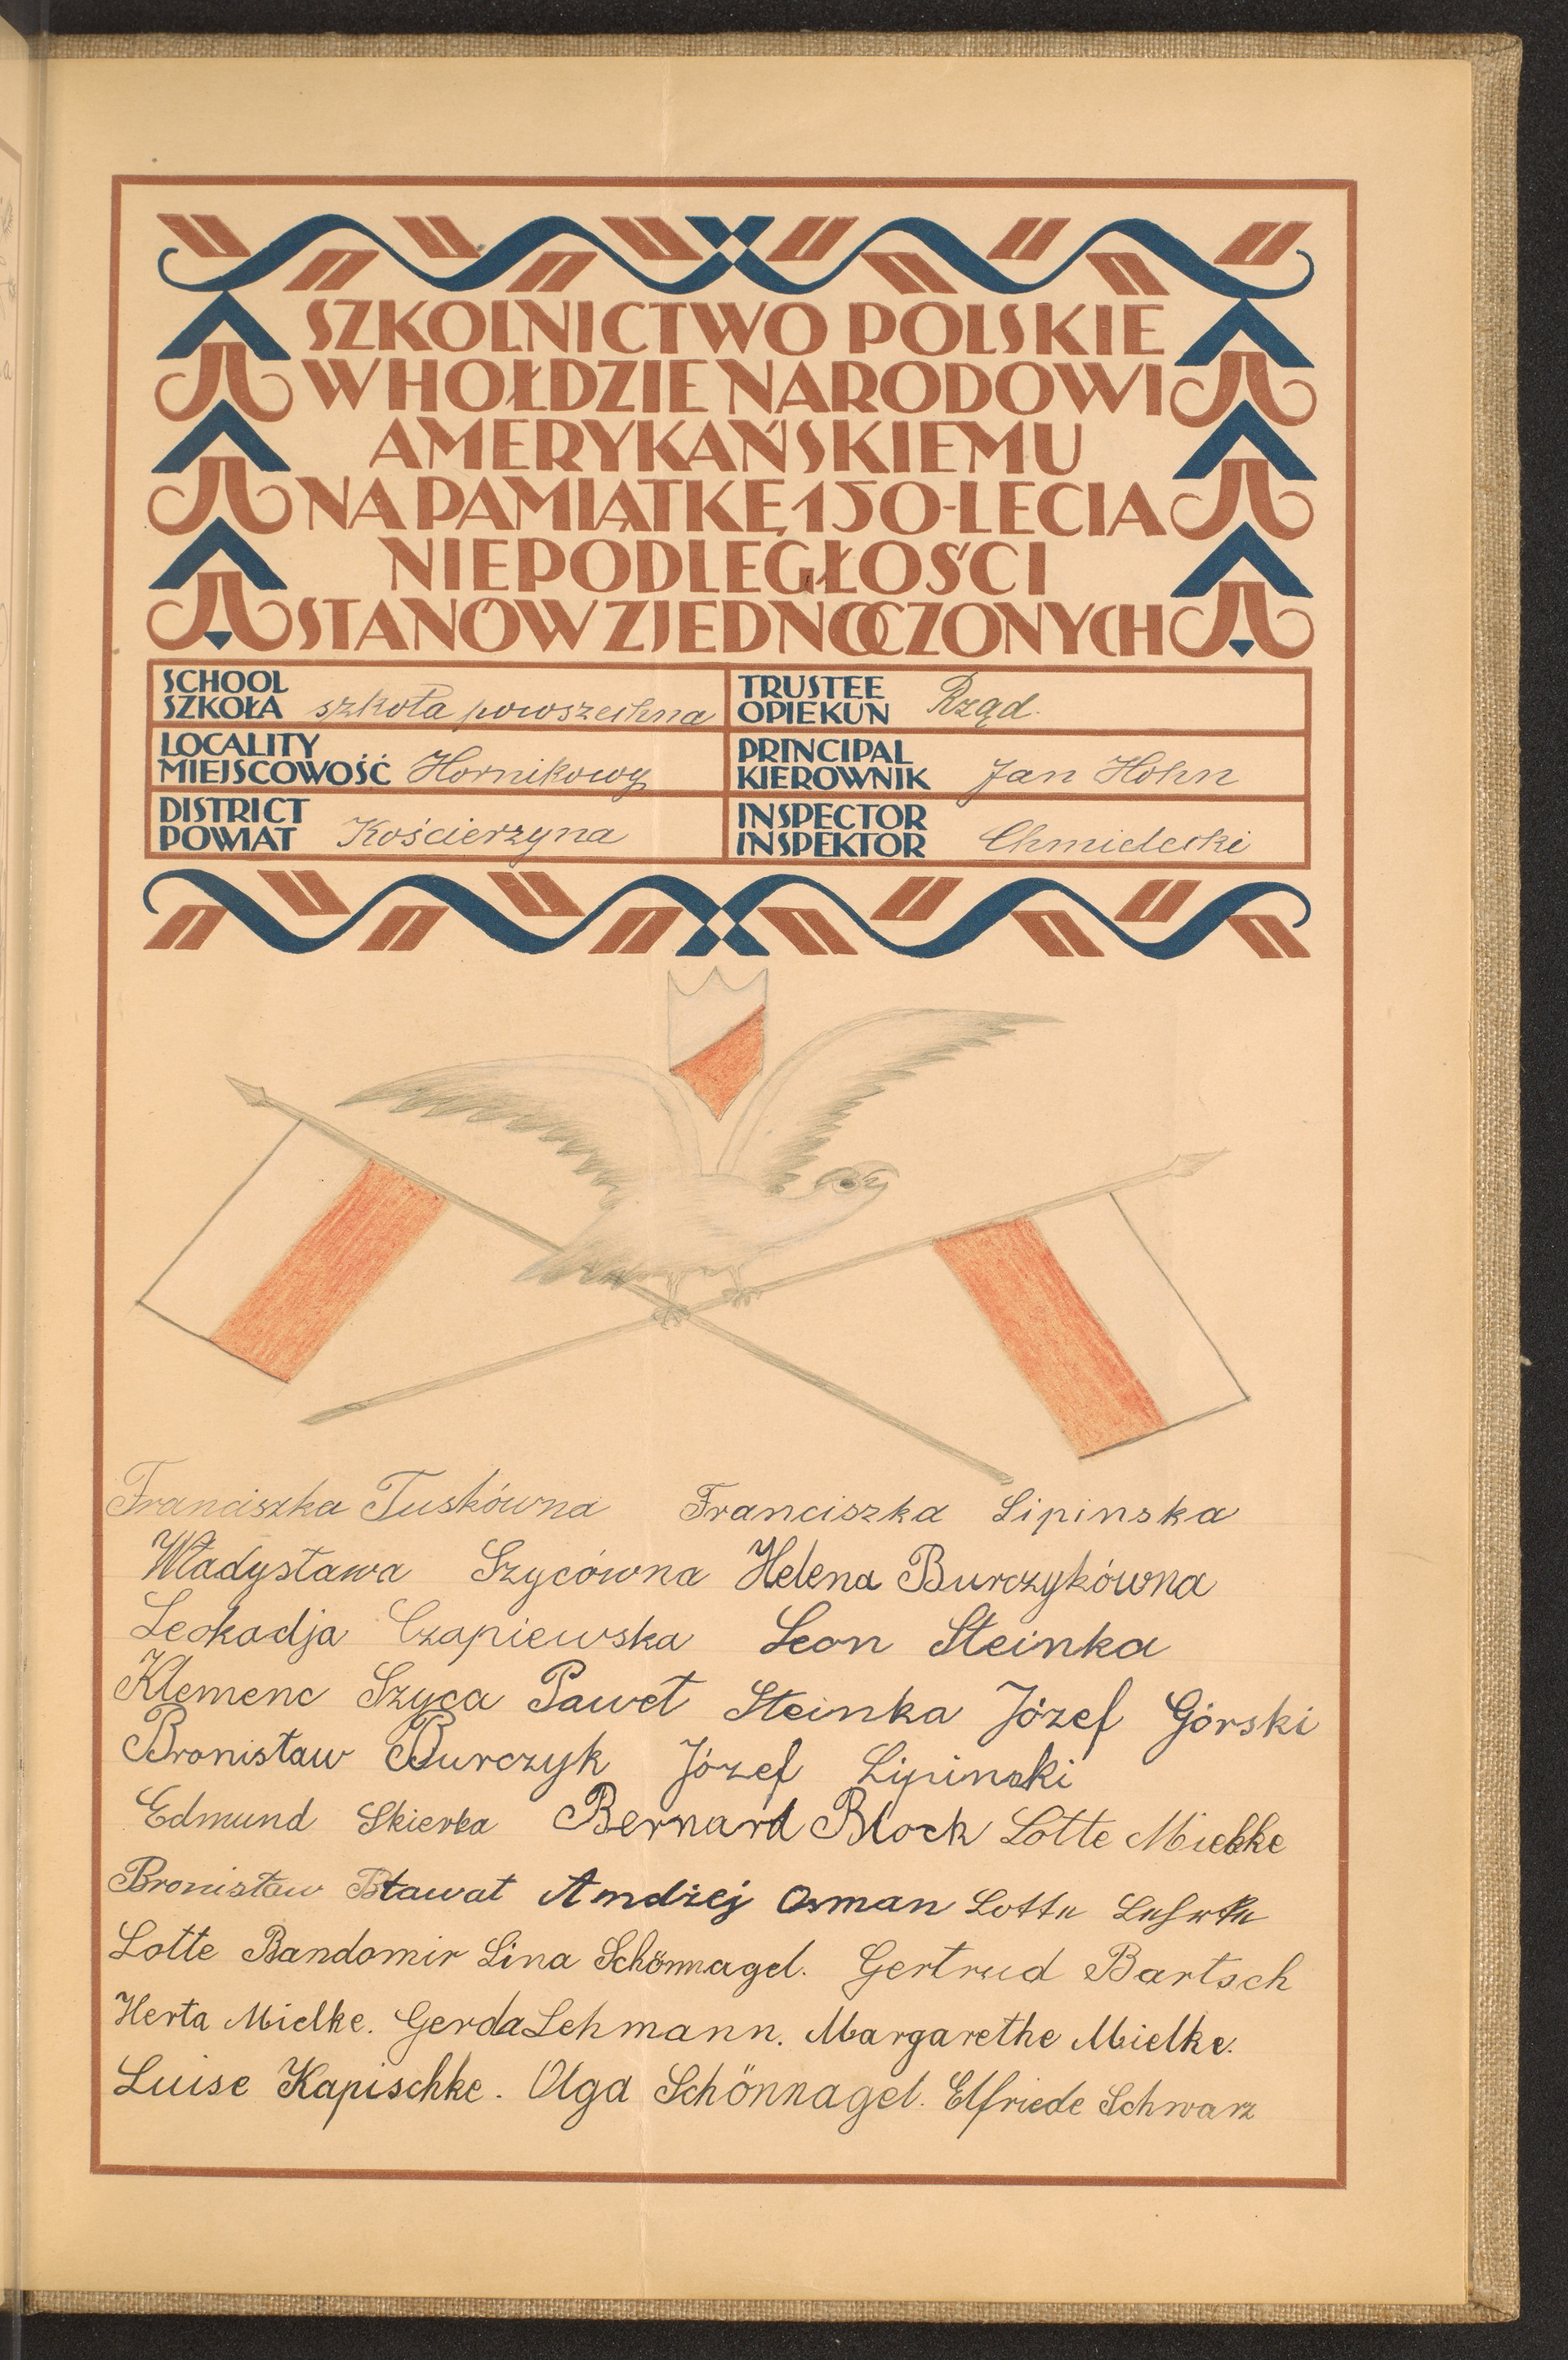 SZKOLNICTWO POLSKIE
W HOŁDZIE NARODOWI
AMERYKAŃSKIEMU
NA PAMIĄTKĘ 150-LECIA
NIEPODLEGŁOŚCI
STANÓW ZJEDNOCZONYCH
SCHOOL
SZKOŁA szkoła powszechna
TRUSTEE
OPIEKUN Rząd.
LOCALITY
MIEJSCOWOŚĆ Hornikowy
PRINCIPAL
KIEROWNIK Jan Hohn
DISTRICT
POWIAT Kościerzyna
INSPECTOR
INSPEKTOR Chmielecki
Franciszka Tuskówna Franciszka Lipinska
Władysława Szycówna Helena Burczykówna
Leokadja Czapiewska Leon Steinka
Klemenc Szyca Paweł Steinka Józef Górski
Bronisław Burczyk Józef Lipinski
Edmund Skierka Bernard Block Lotte Mielke
Bronisław Bławat Andżej Osman Lotte
Lotte Bandomir Lina Schönnagel. Gertrud Bartsch
Herta Mielke. Gerda Lehmann. Margarethe Mielke.
Luise Kapischke. Olga Schönnagel. Elfriede Schwarz